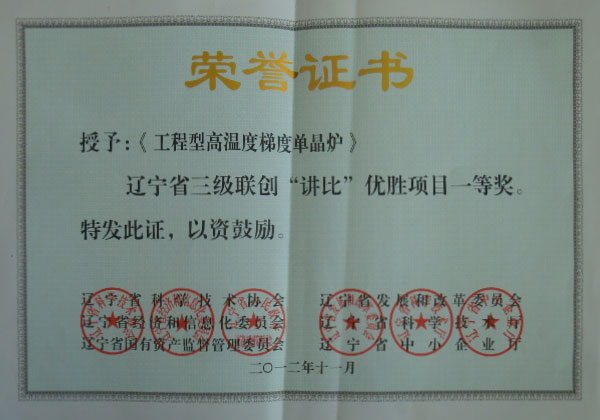 荣誉证书
授予：《工程型高温度梯度单晶炉》
辽宁省三级联创“讲比”优胜项目一等奖。
特发此证，以资鼓励。
辽宁省科学技术协会 辽宁省发展和改革委员会
辽宁省经济和信息化委员会 辽宁省科学技术厅
辽宁省国有资产监督管理委员会 辽宁省中小企业厅
二〇一二年十一月